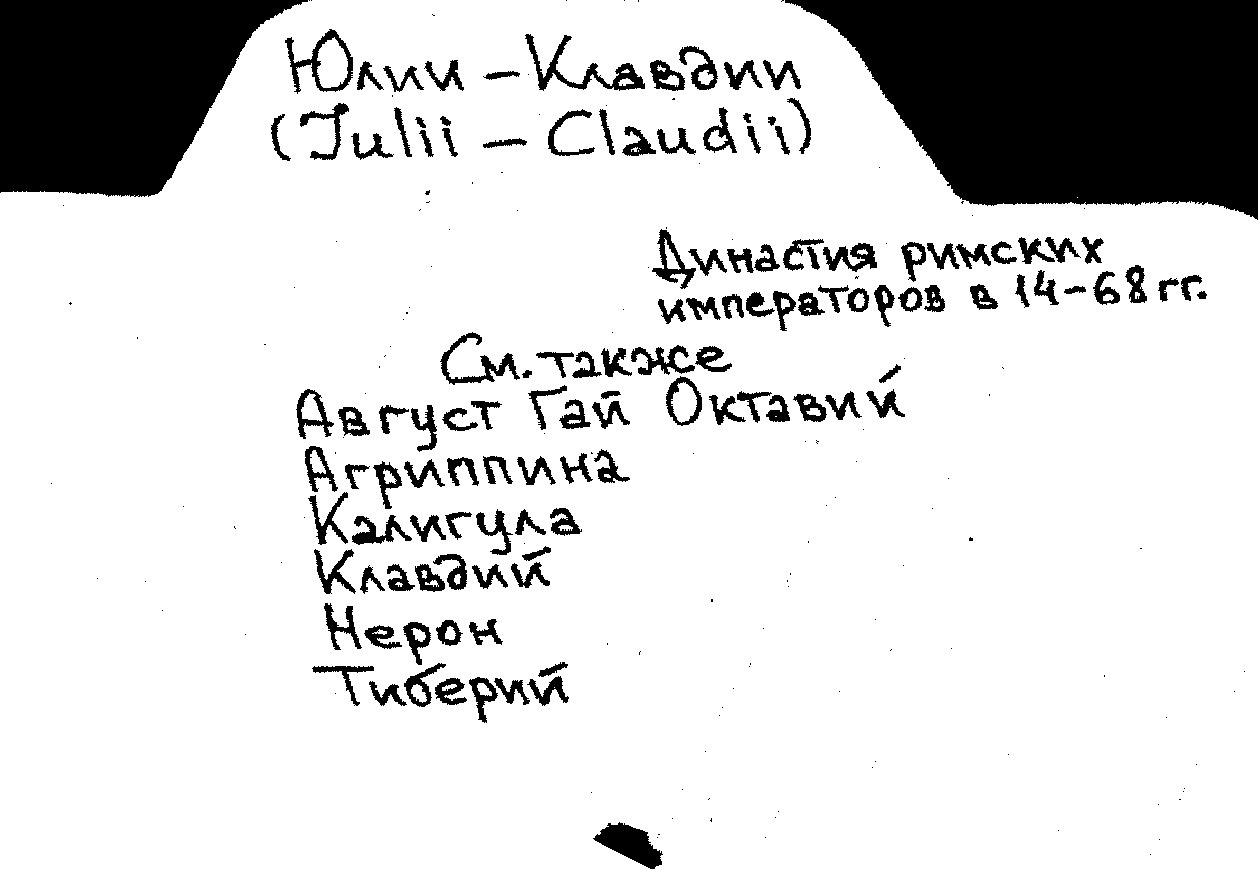 Юлии – Клавдии
(Julii – Claudii)
Династия римских
императоров в 14–68 гг.
См. также
Август Гай Октавий
Агриппина
Калигула
Клавдий
Нерон
Тиберий